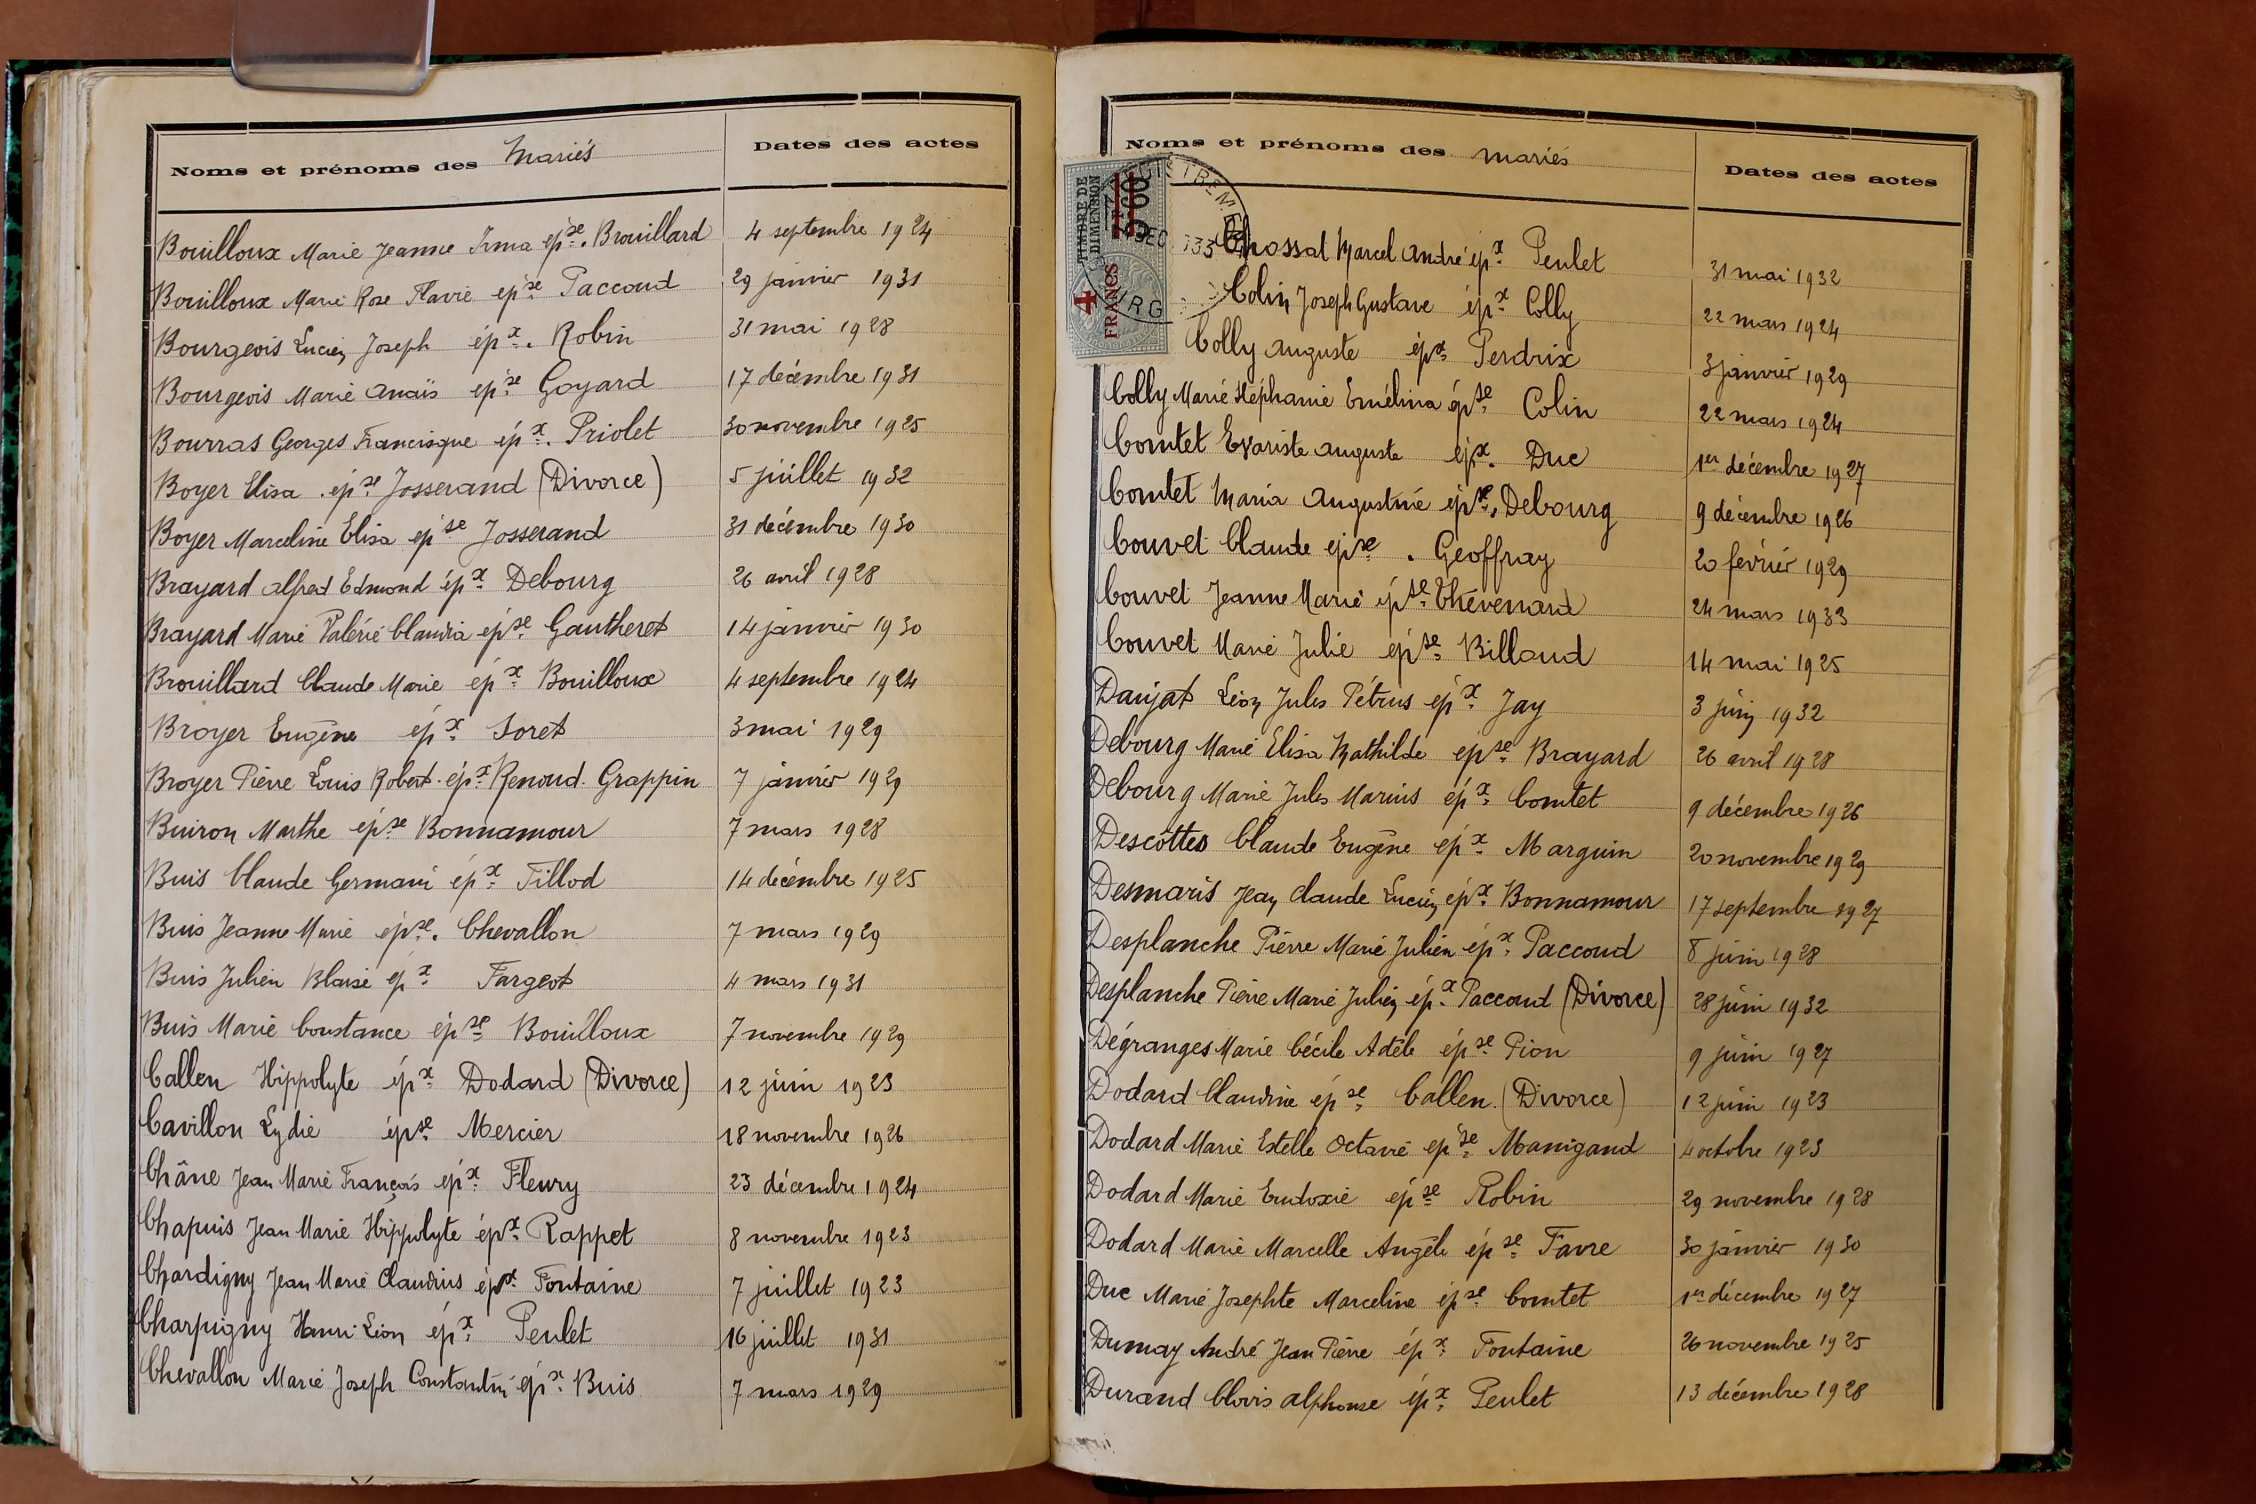 Noms et prénoms des Mariés
Dates des actes
Bouilloux Marie Jeanne Irma épse. Brouillard 4 septembre 1924
Bouilloux Marie Rose Flavie épse Paccoud 29 janvier 1931
Bourgeois Lucien Joseph épx. Robin 31 mai 1928
Bourgeois Marie Anaïs épse Goyard 17 décembre 1931
Bourras Georges Francisque épx. Priolet 30 novembre 1925
Boyer Elisa épse Josserand (Divorce) 5 juillet 1932
Boyer Marceline Elisa épse Josserand 31 décembre 1930
Brayard Alfred Edmond épx Debourg 26 avril 1928
Brayard Marie Valérie Claudia épse Gautheret 14 janvier 1930
Brouillard Claude Marie épx Bouilloux 4 septembre 1924
Broyer Eugène épx Soret 3 mai 1929
Broyer Pierre Louis Robert épx Renoud-Grappin 7 janvier 1929
Buiron Marthe épse Bonnamour 7 mars 1928
Buis Claude Germain épx Tillod 14 décembre 1925
Buis Jeanne Marie épse. Chevallon 7 mars 1929
Buis Julien Blaise épx Fargeot 4 mars 1931
Buis Marie Constance épse Bouilloux 7 novembre 1929
Callen Hippolyte épx Dodard (Divorce) 12 juin 1923
Cavillon Lydie épse Mercier 18 novembre 1926
Châne Jean Marie François épx Fleury 23 décembre 1924
Chapuis Jean Marie Hippolyte épx Rappet 8 novembre 1923
Chardigny Jean Marie Claudius épx Fontaine 7 juillet 1923
Charpigny Henri Léon épx Penlet 16 juillet 1931
Chevallon Marie Joseph Constantin épx Buis 7 mars 1929
Noms et prénoms des mariés
Dates des actes
TIMBRE DE DIMENSION
4 FRANCS
Chossat Marcel André épx Penlet 31 mai 1932
Colin Joseph Gustave épx Colly 22 mars 1924
Colly Auguste épx Perdrix 3 janvier 1929
Colly Marie Stéphanie Emélina épse Colin 22 mars 1924
Comtet Evariste Auguste épx. Duc 1er décembre 1927
Comtet Maria Augustine épse. Debourg 9 décembre 1926
Couvet Claude épse. Geoffray 20 février 1929
Couvet Jeanne Marie épse Thévenard 24 mars 1933
Couvet Marie Julie épse Billoud 14 mai 1925
Daujat Léon Jules Pétrus épx Jay 3 juin 1932
Debourg Marie Elisa Mathilde épse Brayard 26 avril 1928
Debourg Marie Jules Marius épx Comtet 9 décembre 1926
Descôttes Claude Eugène épx Marguin 20 novembre 1929
Desmaris Jean Claude Lucien épx Bonnamour 17 septembre 1927
Desplanche Pierre Marie Julien épx Paccoud 8 juin 1928
Desplanche Pierre Marie Julien épx Paccoud (Divorce) 28 juin 1932
Dégranges Marie Cécile Adèle épse Pion 9 juin 1927
Dodard Claudine épse Callen (Divorce) 12 juin 1923
Dodard Marie Estelle Octavie épse Manigand 4 octobre 1923
Dodard Marie Eudoxie épse Robin 29 novembre 1928
Dodard Marie Marcelle Angèle épse Favre 30 janvier 1930
Duc Marie Josephte Marceline épse Comtet 1er décembre 1927
Dumay André Jean Pierre épx Fontaine 26 novembre 1925
Durand Clovis Alphonse épx Penlet 13 décembre 1928